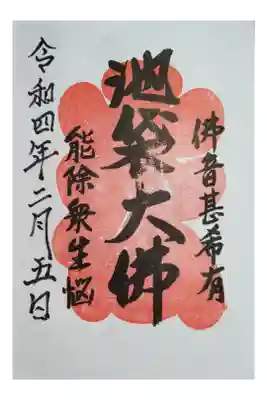 佛音甚希有
池袋大佛
能除衆生悩
令和四年二月五日